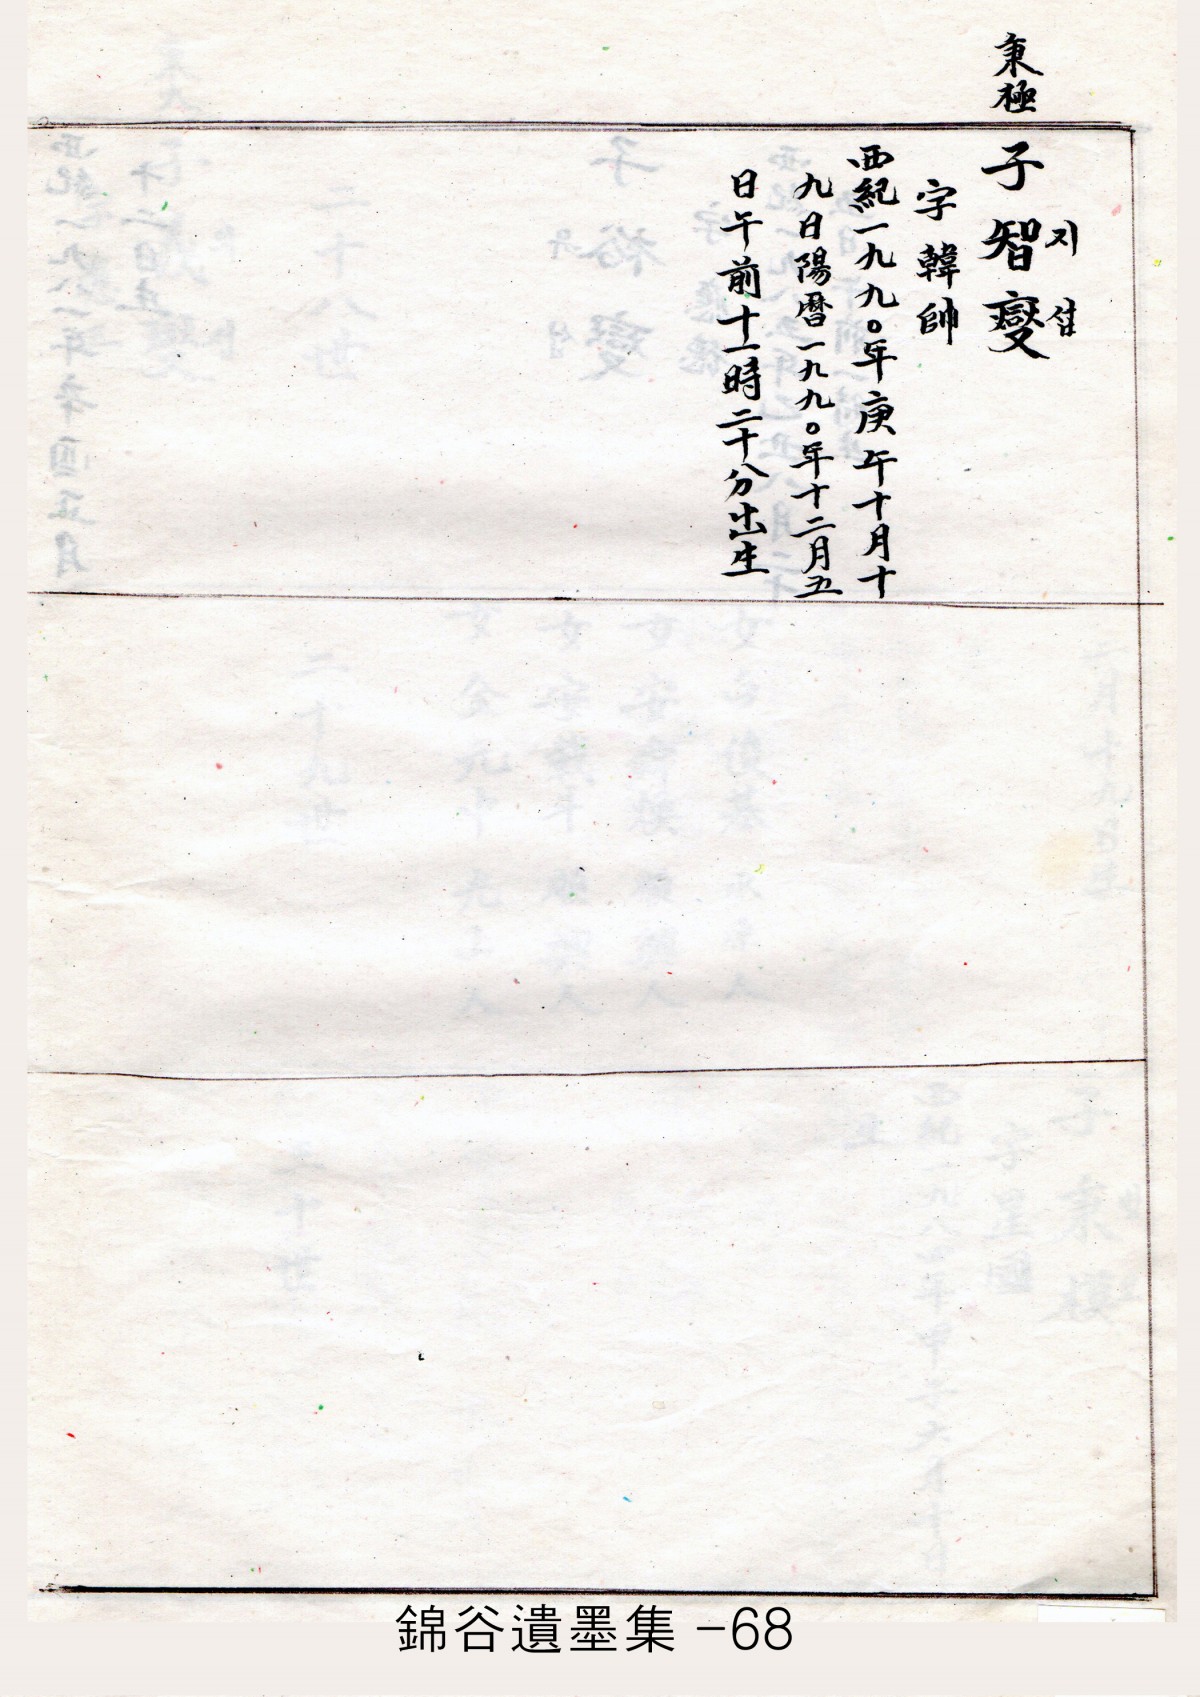 秉極
子智燮
지섭
字韓帥
西紀一九九〇年庚午十月十
九日陽曆一九九〇年十二月五
日午前十一時二十分出生
錦谷遺墨集 -68